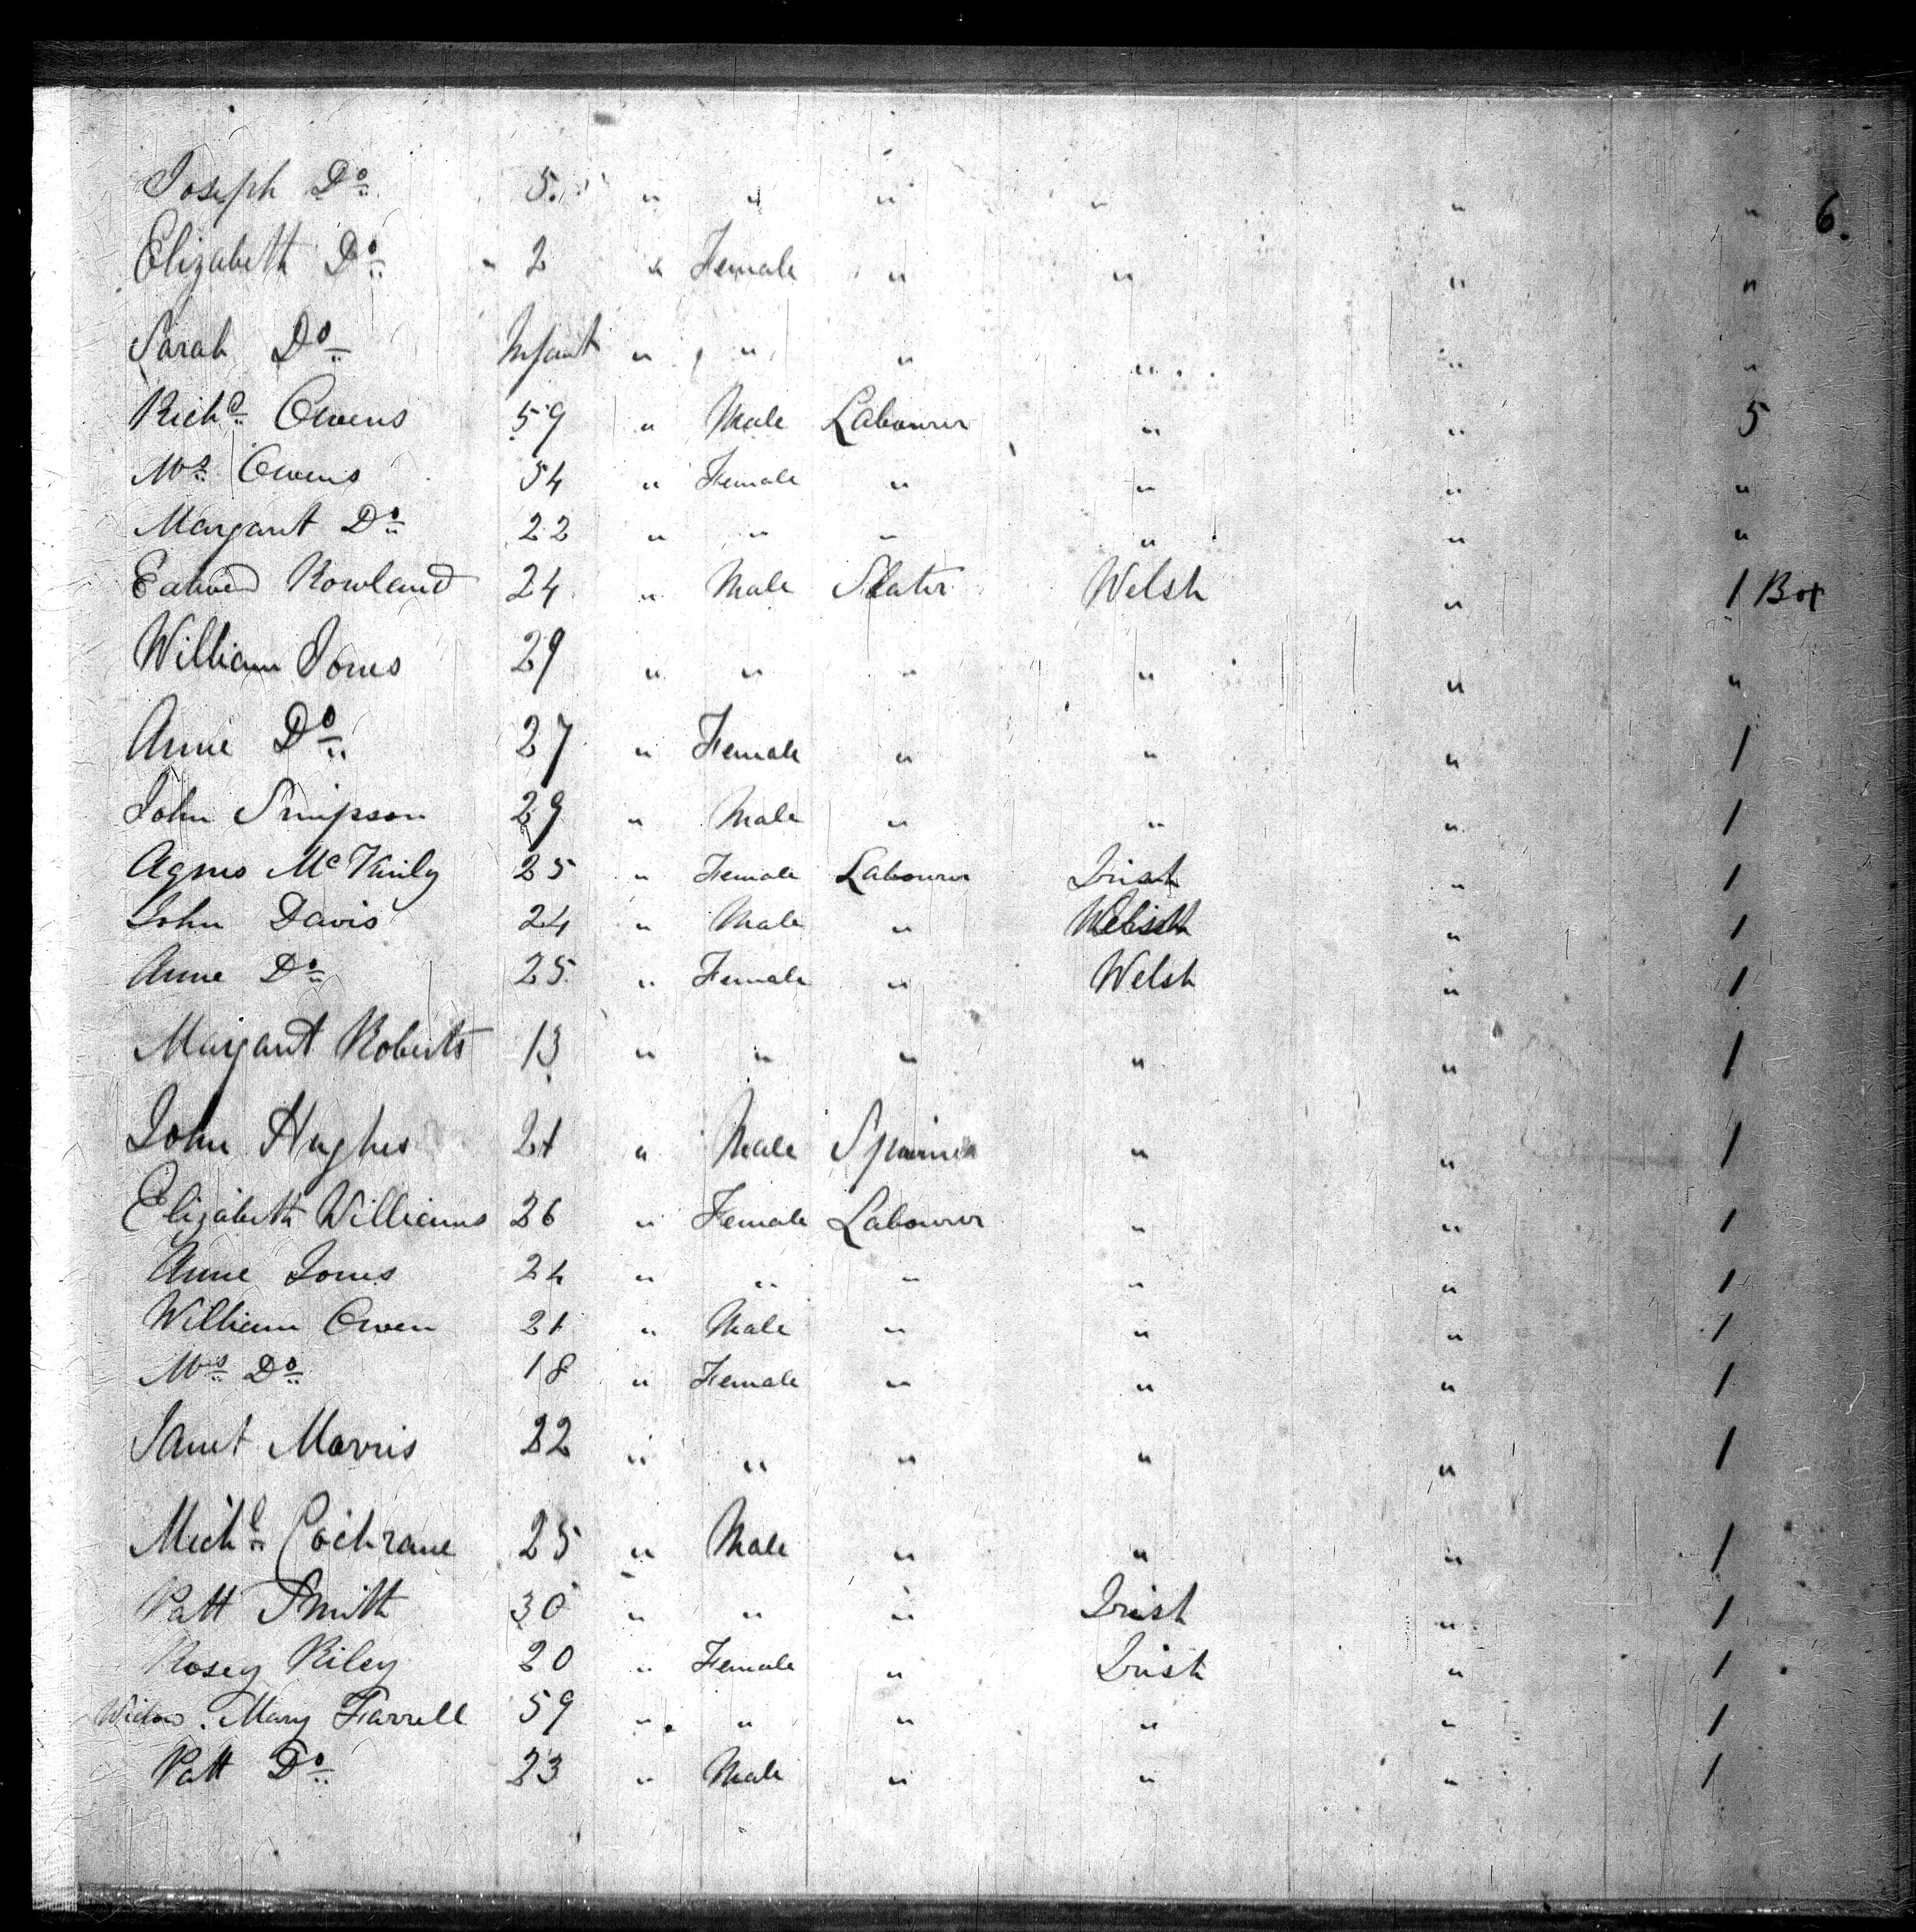 6.
Joseph Do 5. " " " " " "
Elizabeth Do 2 " Female " " " "
Sarah Do Infant " " " " " "
Richd Owens 59 " Male Labourer " " 5
Mrs Owens 54 " Female " " " "
Margaret Do 22 " " " " " "
Edward Rowland 24 " Male Slater Welsh " 1 Box
William Jones 29 " " " " " "
Anne Do 27 " Female " " " 1
John Simpson 29 " Male " " " 1
Agnes McKinly 25 " Female Labourer Irish " 1
John Davis 24 " Male " Welsh " 1
Anne Do 25 " Female " Welsh " 1
Margaret Roberts 13 " " " " " 1
John Hughes 21 " Male " " 1
Elizabeth Williams 26 " Female Labourer " " 1
Anne Jones 24 " " " " " 1
William Owen 21 " Male " " " 1
Mrs Do 18 " Female " " " 1
Janet Morris 22 " " " " " 1
Michl Cochrane 25 " Male " " " 1
Patt Smith 30 " " " Irish " 1
Rosey Riley 20 " Female " Irish " 1
Widow. Mary Farrell 59 " " " " " 1
Patt Do 23 " Male " " " 1